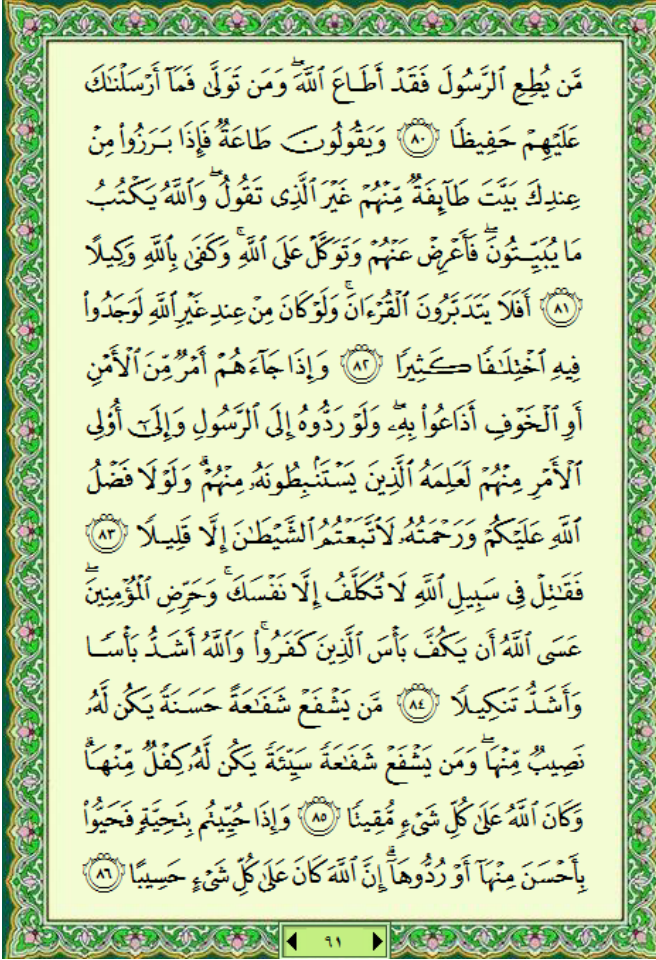 مَّن يُطِعِ ٱلرَّسُولَ فَقَدْ أَطَاعَ ٱللَّهَ ۖ وَمَن تَوَلَّىٰ فَمَآ أَرْسَلْنَٰكَ
عَلَيْهِمْ حَفِيظًا ﴿٨٠﴾ وَيَقُولُونَ طَاعَةٌ فَإِذَا بَرَزُوا۟ مِنْ
عِندِكَ بَيَّتَ طَآئِفَةٌ مِّنْهُمْ غَيْرَ ٱلَّذِى تَقُولُ ۖ وَٱللَّهُ يَكْتُبُ
مَا يُبَيِّتُونَ ۖ فَأَعْرِضْ عَنْهُمْ وَتَوَكَّلْ عَلَى ٱللَّهِ ۚ وَكَفَىٰ بِٱللَّهِ وَكِيلًا
﴿٨١﴾ أَفَلَا يَتَدَبَّرُونَ ٱلْقُرْءَانَ ۚ وَلَوْ كَانَ مِنْ عِندِ غَيْرِ ٱللَّهِ لَوَجَدُوا۟
فِيهِ ٱخْتِلَٰفًا كَثِيرًا ﴿٨٢﴾ وَإِذَا جَآءَهُمْ أَمْرٌ مِّنَ ٱلْأَمْنِ
أَوِ ٱلْخَوْفِ أَذَاعُوا۟ بِهِۦ ۖ وَلَوْ رَدُّوهُ إِلَى ٱلرَّسُولِ وَإِلَىٰٓ أُو۟لِى
ٱلْأَمْرِ مِنْهُمْ لَعَلِمَهُ ٱلَّذِينَ يَسْتَنۢبِطُونَهُۥ مِنْهُمْ ۗ وَلَوْلَا فَضْلُ
ٱللَّهِ عَلَيْكُمْ وَرَحْمَتُهُۥ لَٱتَّبَعْتُمُ ٱلشَّيْطَٰنَ إِلَّا قَلِيلًا ﴿٨٣﴾
فَقَٰتِلْ فِى سَبِيلِ ٱللَّهِ لَا تُكَلَّفُ إِلَّا نَفْسَكَ ۚ وَحَرِّضِ ٱلْمُؤْمِنِينَ ۖ
عَسَى ٱللَّهُ أَن يَكُفَّ بَأْسَ ٱلَّذِينَ كَفَرُوا۟ ۚ وَٱللَّهُ أَشَدُّ بَأْسًا
وَأَشَدُّ تَنكِيلًا ﴿٨٤﴾ مَّن يَشْفَعْ شَفَٰعَةً حَسَنَةً يَكُن لَّهُۥ
نَصِيبٌ مِّنْهَا ۖ وَمَن يَشْفَعْ شَفَٰعَةً سَيِّئَةً يَكُن لَّهُۥ كِفْلٌ مِّنْهَا ۗ
وَكَانَ ٱللَّهُ عَلَىٰ كُلِّ شَىْءٍ مُّقِيتًا ﴿٨٥﴾ وَإِذَا حُيِّيتُم بِتَحِيَّةٍ فَحَيُّوا۟
بِأَحْسَنَ مِنْهَآ أَوْ رُدُّوهَآ ۗ إِنَّ ٱللَّهَ كَانَ عَلَىٰ كُلِّ شَىْءٍ حَسِيبًا ﴿٨٦﴾
٩١